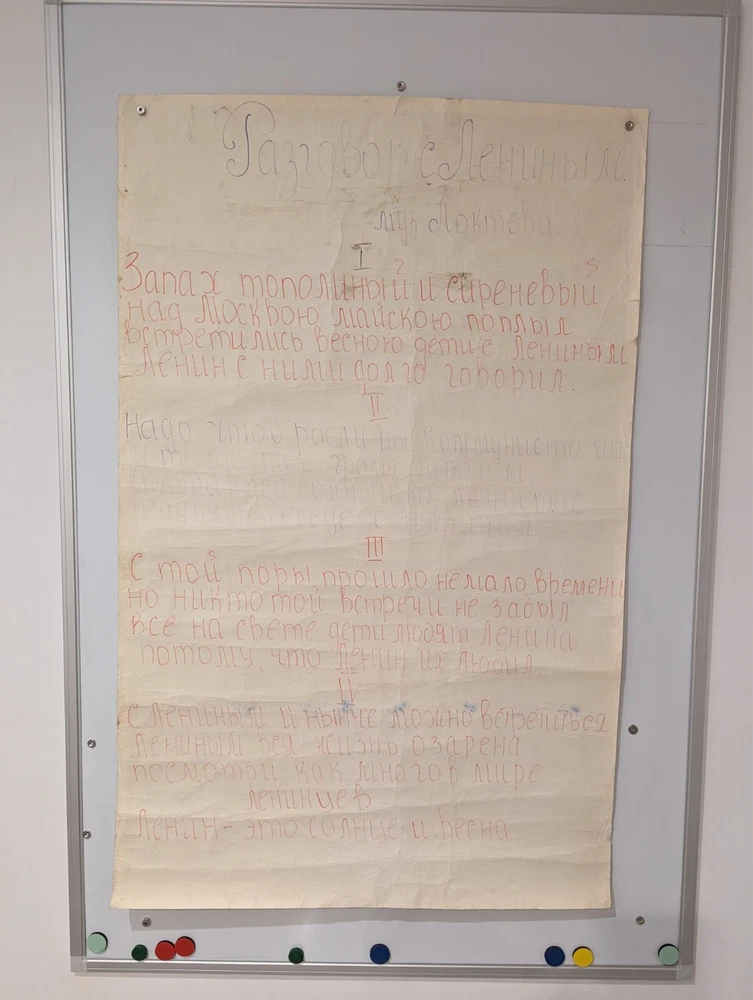 Разговор с Лениным.
муз Локтева.
I
2 5
Запах тополиный и сиреневый
над Москвою майскою поплыл
встретились весною дети с Лениным
Ленин с ними долго говорил.
II
Надо чтоб росли вы коммунистами
и грозы нипочем
солнышко лучистое
беседе с Ильичом.
III
С той поры прошло немало времени
но никто той встречи не забыл
все на свете дети любят Ленина
потому, что Ленин их любил.
II
С Лениным и нынче можно встретиться
Лениным вся жизнь озарена
посмотри как много в мире
ленинцев
Ленин - это солнце и весна.